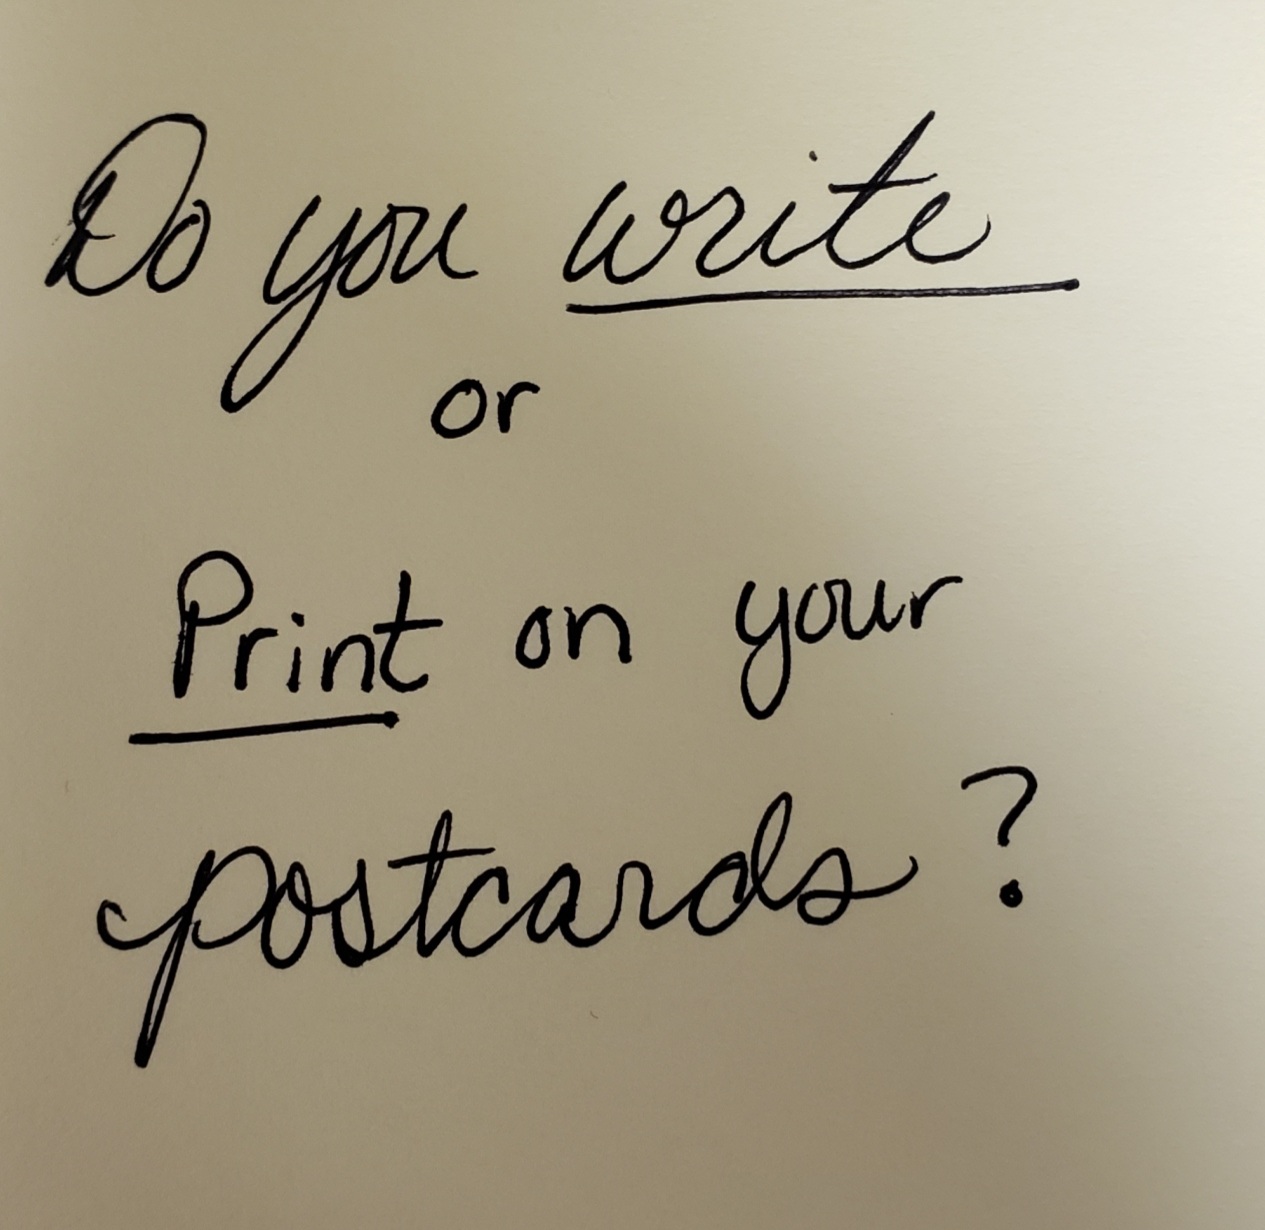 Do you write
or
Print on your
postcards?